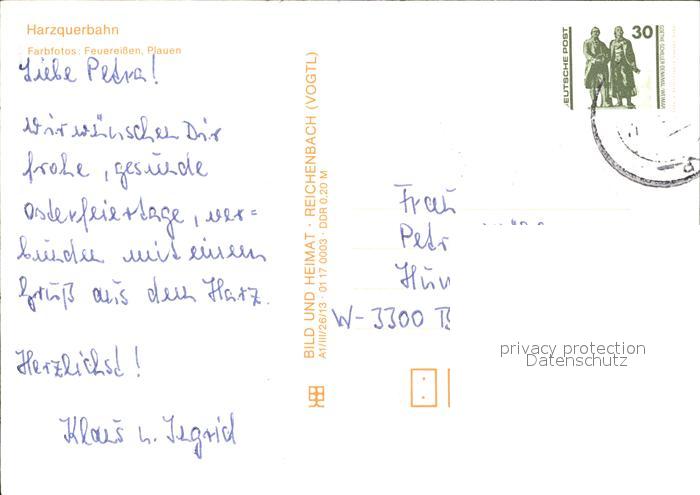 Harzquerbahn
Farbfotos: Feuereißen, Plauen
Liebe Petra!
Wir wünschen Dir
frohe, gesunde
Osterfeiertage, ver=
bunden mit einem
Gruß aus dem Harz.
Herzlichst!
Klaus u. Ingrid
BILD UND HEIMAT · REICHENBACH (VOGTL)
A1/III/26/13 · 01 17 0003 · DDR 0,20 M
DEUTSCHE POST
30
GOETHE-SCHILLER-DENKMAL, WEIMAR
Frau
Petr
W-3300 B
privacy protection
Datenschutz